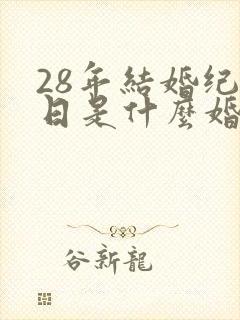 28年結婚纪
日是什麼婚
谷新龍